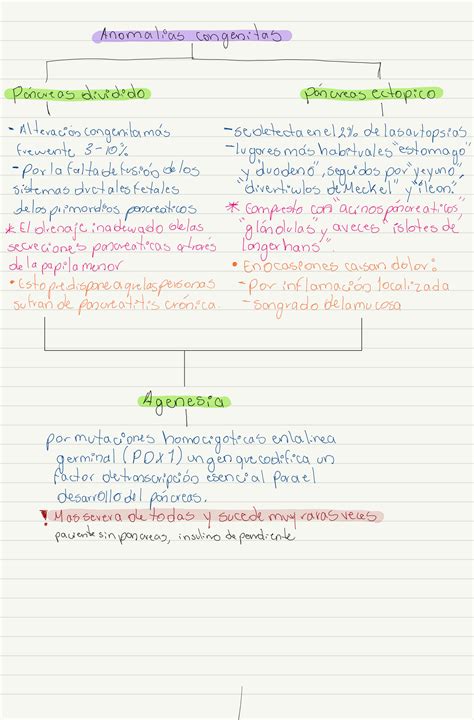 Anomalias congenitas
Páncreas dividido
- Alteración congenita más
frecuente 3-10%
- Por la falta de fusión de los
sistemas ductales fetales
de los primordios pancreáticos
* El drenaje inadecuado de las
secreciones pancreáticas a través
de la papila menor
• Esto predispone a que las personas
sufran de pancreatitis crónica.
páncreas ectopico
- se detecta en el 2% de las autopsias
- lugares más habituales "estomago"
y "duodeno", seguidos por "yeyuno",
"divertículos de Meckel" y "íleon".
* Compuesto con "acinos páncreaticos"
"glándulas" y aveces "islotes de
langerhans"
• En ocasiones causan dolor:
- Por inflamación localizada
- sangrado de la mucosa
Agenesia
por mutaciones homocigoticas en la linea
germinal (PDX1) un gen que codifica un
factor de transcripción esencial para el
desarrollo del páncreas.
! Mas severa de todas y sucede muy raras veces
paciente sin pancreas, insulino dependiente